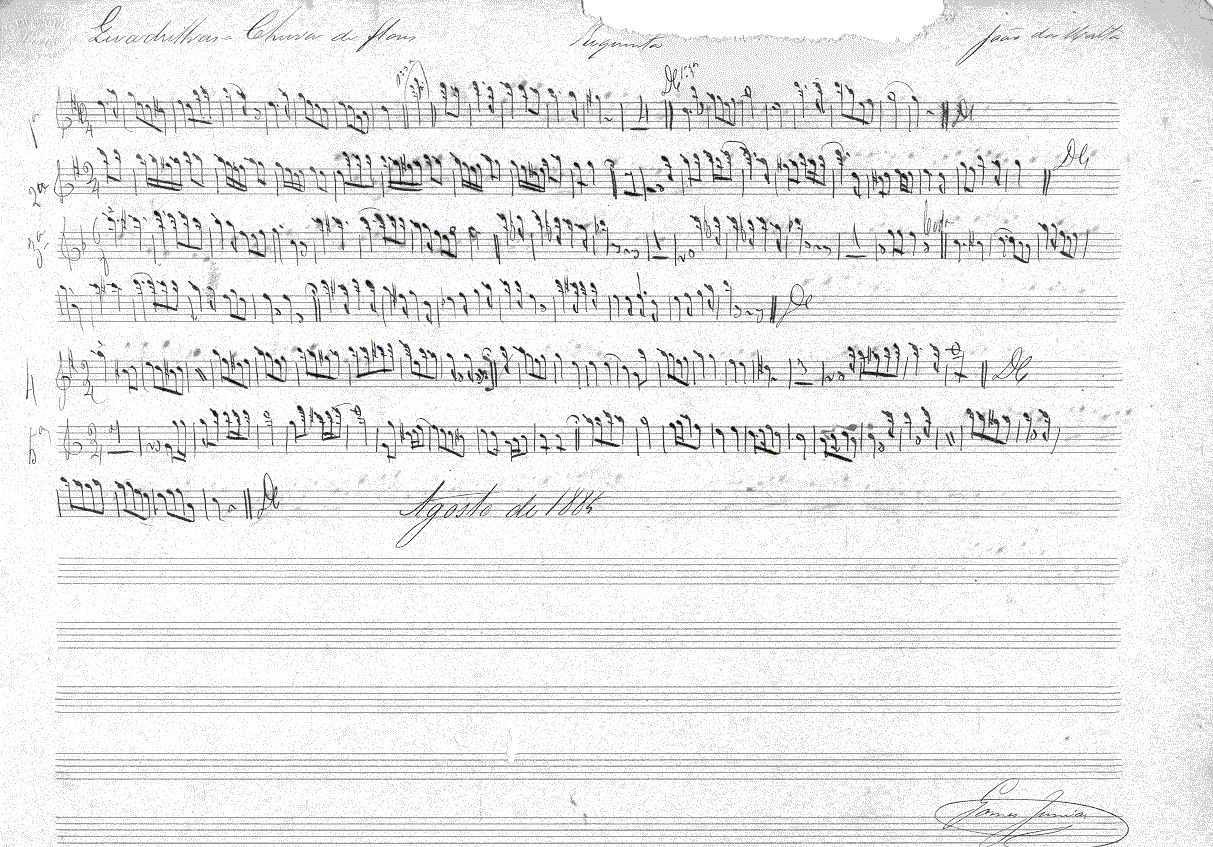 Quadrilhas Chuva de flores Requinta João da Matta
1ª 2/4 DC
2ª 2/4 DC
3ª 6/8
DC
4 2/4 DC
5ª 2/4
DC Agosto de 1884
Gomes Junior